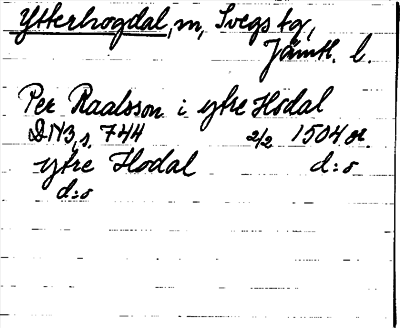 Ytterhogdal, m, Svegs tg,
Jämtl. l.
Per Raalsson i ytre Hodal
DN3, s. 744 2/2 1504 or.
ytre Hodal d:o
d:o